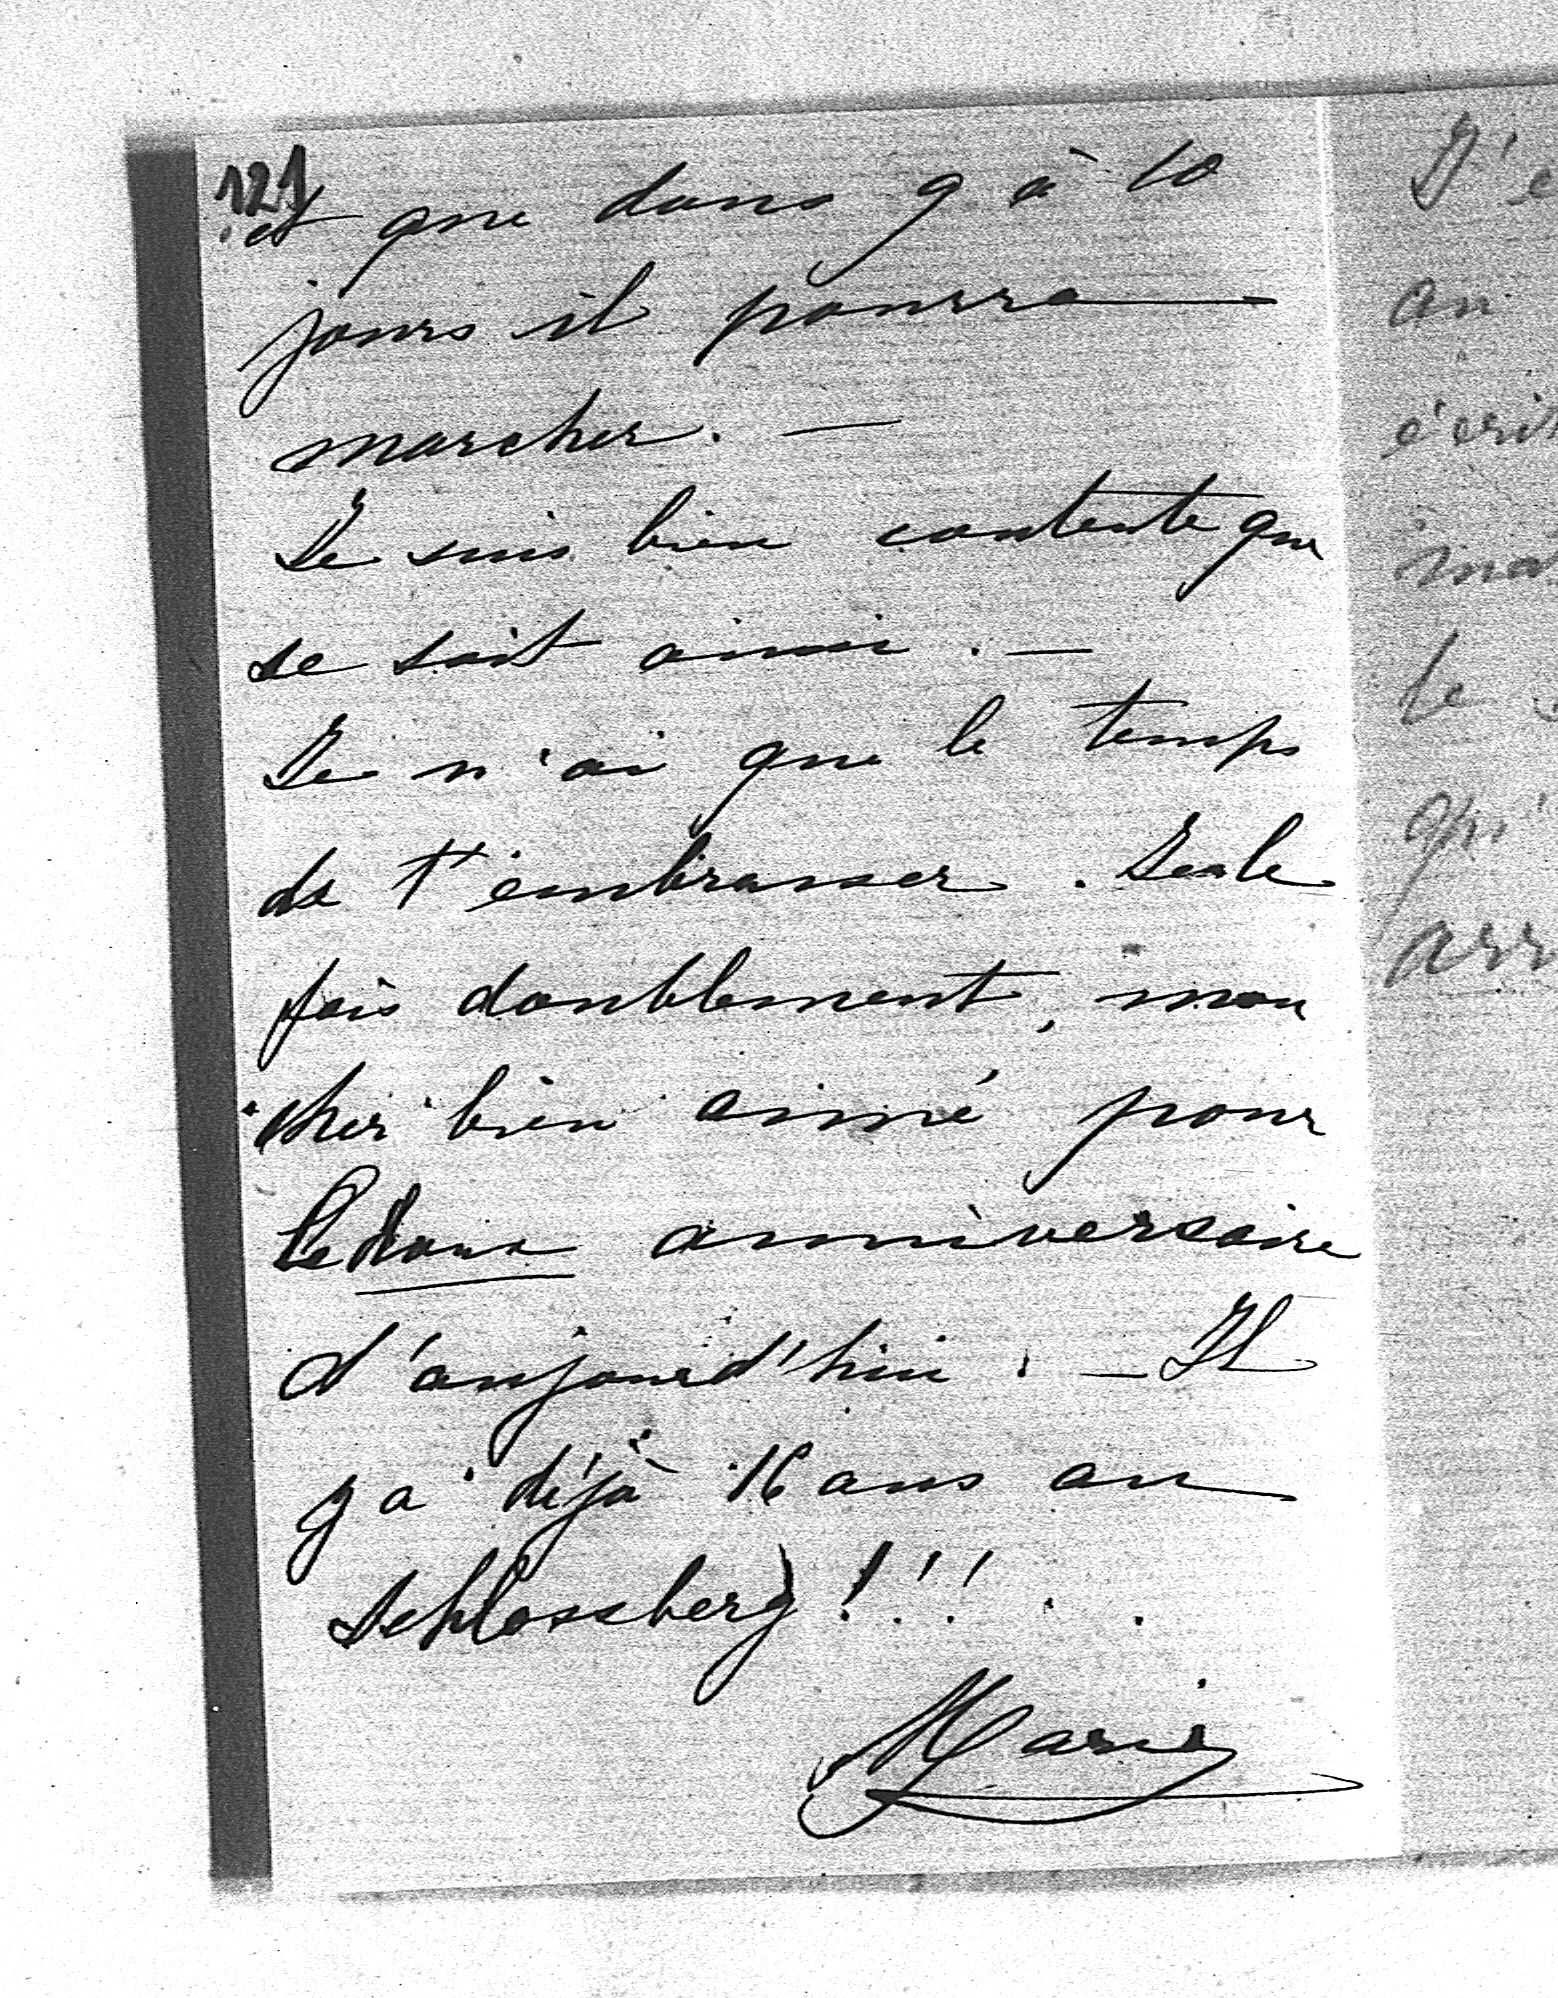 121
et que dans 9 à 10
jours il pourra
marcher. —
Je suis bien contente que
se soit ainsi. —
Je n'ai que le temps
de t'embrasser.
fois doublement, mon
cher bien aimé pour
le doux anniversaire
d'aujourd'hui. — Il
y a déjà 16 ans au
Schlossberg!!! . .
Marie
J'e
an
écrit
ma
le
qu'
arr